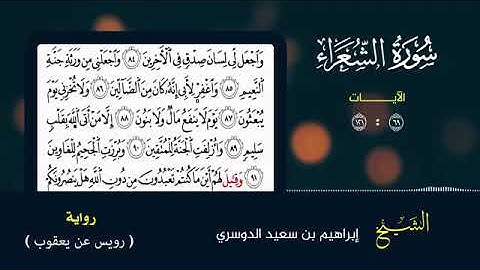 سورة الشعراء
الآيات
٦٩ : ١٢٦
وَاجْعَل لِّي لِسَانَ صِدْقٍ فِي الْآخِرِينَ ٨٤ وَاجْعَلْنِي مِن وَرَثَةِ جَنَّةِ
النَّعِيمِ ٨٥ وَاغْفِرْ لِأَبِي إِنَّهُ كَانَ مِنَ الضَّالِّينَ ٨٦ وَلَا تُخْزِنِي يَوْمَ
يُبْعَثُونَ ٨٧ يَوْمَ لَا يَنفَعُ مَالٌ وَلَا بَنُونَ ٨٨ إِلَّا مَنْ أَتَى اللَّهَ بِقَلْبٍ
سَلِيمٍ ٨٩ وَأُزْلِفَتِ الْجَنَّةُ لِلْمُتَّقِينَ ٩٠ وَبُرِّزَتِ الْجَحِيمُ لِلْغَاوِينَ
٩١ وَقِيلَ لَهُمْ أَيْنَ مَا كُنتُمْ تَعْبُدُونَ مِن دُونِ اللَّهِ هَلْ يَنصُرُونَكُمْ
الشيخ
إبراهيم بن سعيد الدوسري
رواية
( رويس عن يعقوب )